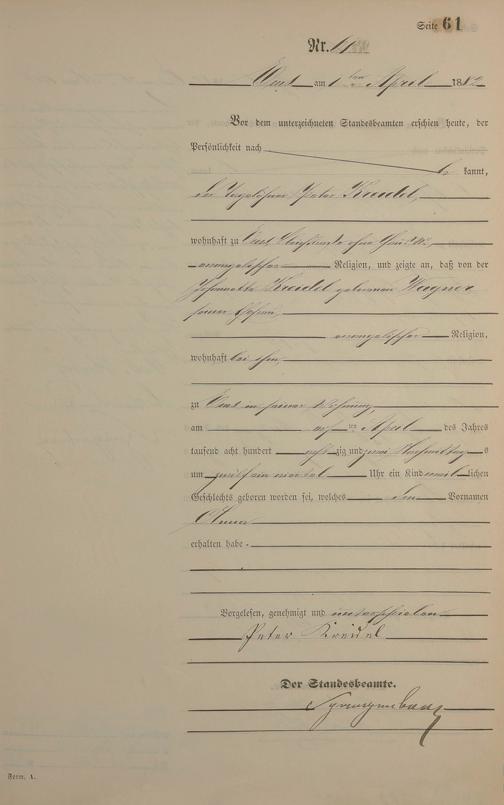 Seite 61
Nr. 61
Ems am 1ten April 1882
Vor dem unterzeichneten Standesbeamten erschien heute, der
Persönlichkeit nach
be kannt,
der Tagelöhner Peter Kreidel,
wohnhaft zu Ems
evangelischer Religion, und zeigte an, daß von der
Kreidel geborenen Wagner
seiner Ehefrau,
evangelischer Religion,
wohnhaft bei ihm,
zu Ems in seiner Wohnung,
am ten April des Jahres
tausend acht hundert acht zig und zwei Nachmittags
um Uhr ein Kind weib lichen
Geschlechts geboren worden sei, welches den Vornamen
Anna
erhalten habe.
Vorgelesen, genehmigt und unterschrieben
Peter Kreidel
Der Standesbeamte.
Form. A.